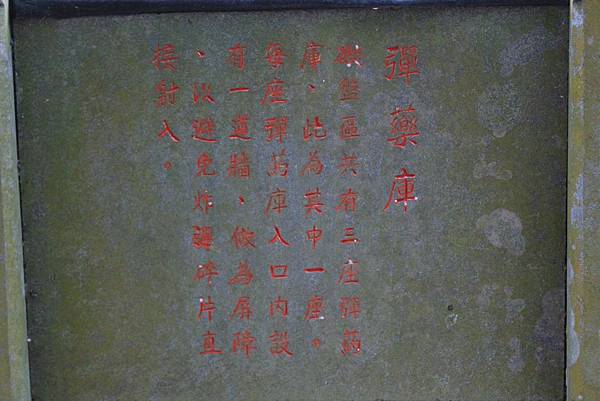 彈藥庫
砲盤區共有三座彈葯
庫、此為其中一座。
每座彈葯庫入口內設
有一道牆、做為屏障
、以避免炸彈碎片直
接射入。